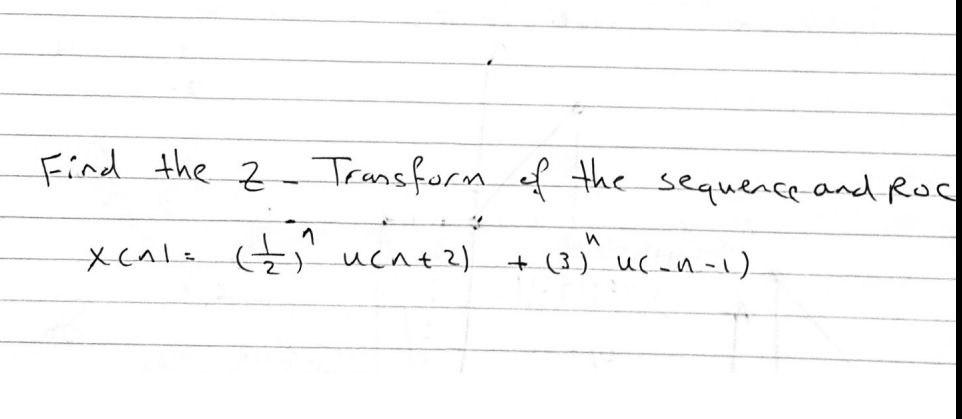 Find the Z - Transform of the sequence and ROC
x(n) = (1/2)^n u(n+2) + (3)^n u(-n-1)